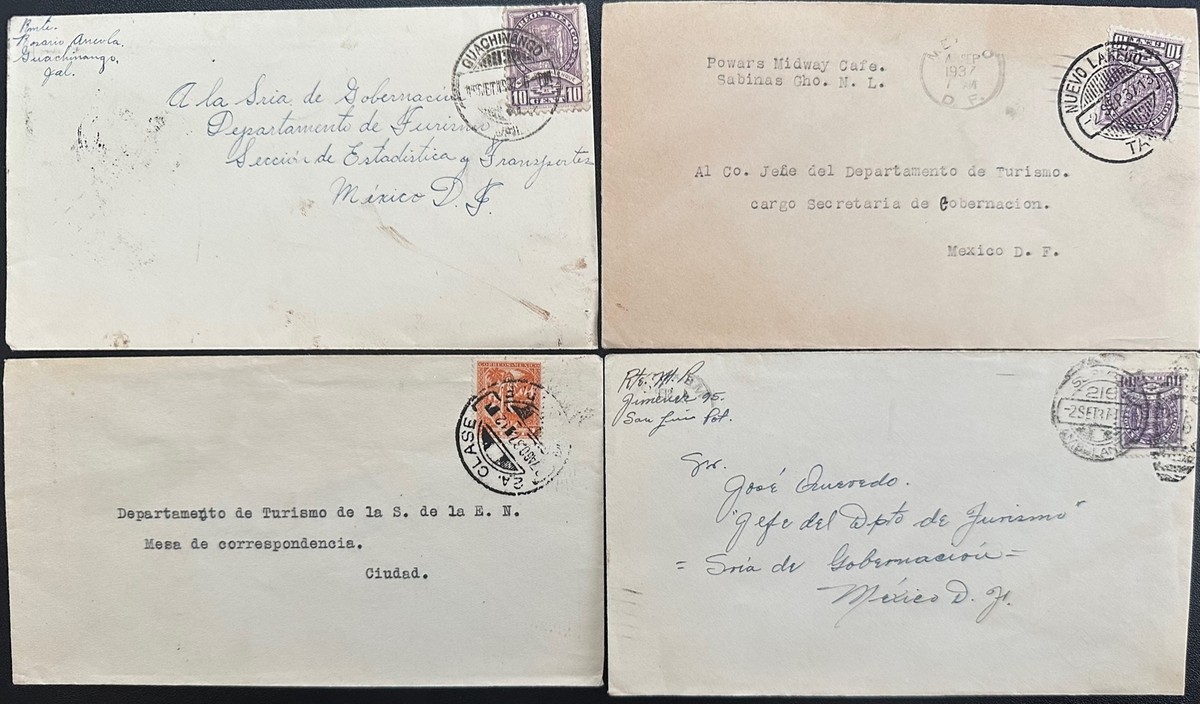 Rmte.
Rosario Arreola.
Guachinango,
Jal.
CORREOS MEXICO
10 CENTAVOS 10
GUACHINANGO
JAL.
A la Sria de Gobernación
Departamento de Turismo
Sección de Estadistica y Transportes
México D. F.
Powars Midway Cafe.
Sabinas Gho. N. L.
SEP
1937
D. F.
10 10
NUEVO LAREDO
TAM
Al Co. Jefe del Departamento de Turismo.
cargo Secretaria de Gobernacion.
Mexico D. F.
CORREOS MEXICO
2A. CLASE
AGO.37
Departamento de Turismo de la S. de la E. N.
Mesa de correspondencia.
Ciudad.
Rte. M. P.
Jimenez 95.
San Luis Pot.
10 10
216
-2SET
Sr.
José Quevedo.
"Jefe del Dpto de Turismo"
= Sria de Gobernación =
México D. F.